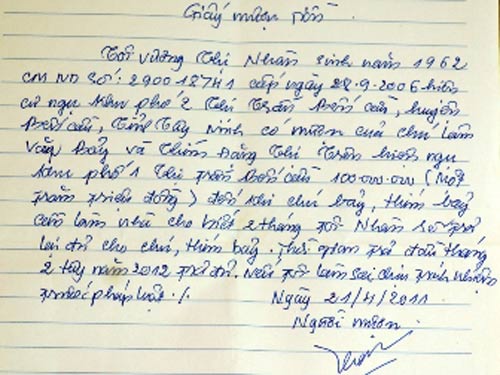 Giấy mượn tiền.
Tôi Vương Thị Nhàn sinh năm 1962
CMND số: 290018741 cấp ngày 28.9.2006 hiện
cư ngụ khu phố 2 Thị Trấn Bến Cầu, huyện
Bến Cầu, Tỉnh Tây Ninh có mượn của chú Lâm
Văn Bảy và Thím Đặng Thị hiện ngụ
khu phố 1 Thị trấn Bến Cầu 100.000.000 (Một
trăm triệu đồng) đến khi chú bảy, thím bảy
cần làm nhà cho biết 2 tháng tôi Nhàn sẽ trả
lại đủ cho chú, thím bảy. Thời gian trả đến tháng
2 tây năm 2012 trả đủ. Nếu tôi làm sai chịu trách nhiệm
trước pháp luật ./.
Ngày 21/4/2011
Người mượn